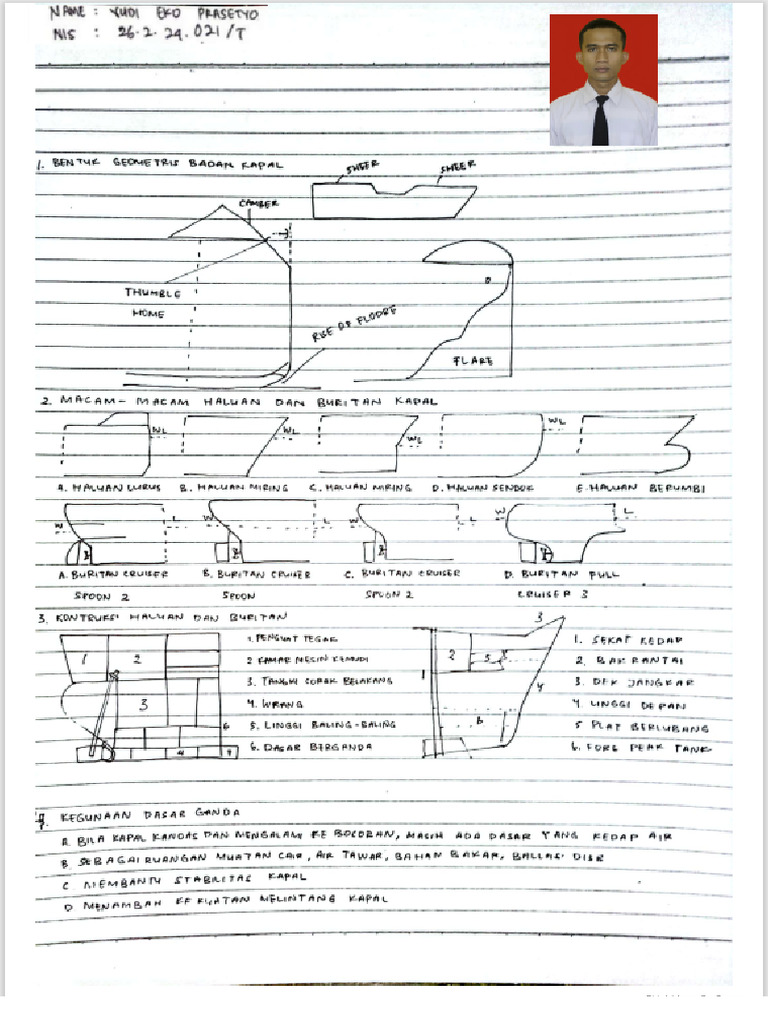 NAME : YUDI EKO PRASETYO
NIS : 26.2.24.021/T
1. BENTUK GEOMETRIS BADAN KAPAL
SHEER
SHEER
CAMBER
THUMBLE
HOME
RISE OF FLOORE
FLARE
2. MACAM - MACAM HALUAN DAN BURITAN KAPAL
WL
WL
WL
WL
A. HALUAN LURUS B. HALUAN MIRING C. HALUAN MIRING D. HALUAN SENDOK E. HALUAN BERUMBI
W L W L W L W L
A. BURITAN CRUISER B. BURITAN CRUISER C. BURITAN CRUISER D. BURITAN FULL
SPOON 2 SPOON SPOON 2 CRUISER 3
3. KONTRUKSI HALUAN DAN BURITAN
1 2 3 4 6
1. PENGUAT TEGAK
2 KAMAR MESIN KEMUDI
3. TANGKI CORAK BELAKANG
4. WRANG
5. LINGGI BALING-BALING
6. DASAR BERGANDA
1 2 3 4 5 6
1. SEKAT KEDAP
2. BAK RANTAI
3. DEK JANGKAR
4 LINGGI DEPAN
5 PLAT BERLUBANG
6. FORE PEAK TANK
4. KEGUNAAN DASAR GANDA
A. BILA KAPAL KANDAS DAN MENGALAMI KEBOCORAN, MASIH ADA DASAR YANG KEDAP AIR
B. SEBAGAI RUANGAN MUATAN CAIR, AIR TAWAR, BAHAN BAKAR, BALLAS
C. MEMBANTU STABILITAS KAPAL
D MENAMBAH KEKUATAN MELINTANG KAPAL